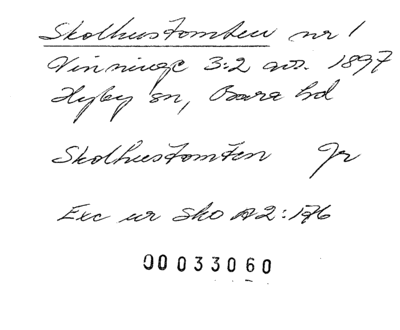 Skolhustomten nr 1
Vinninge 3:2 avs. 1897
Hyby sn, Bara hd
Skolhustomten Jr
Exc ur Sko A2:176
00033060